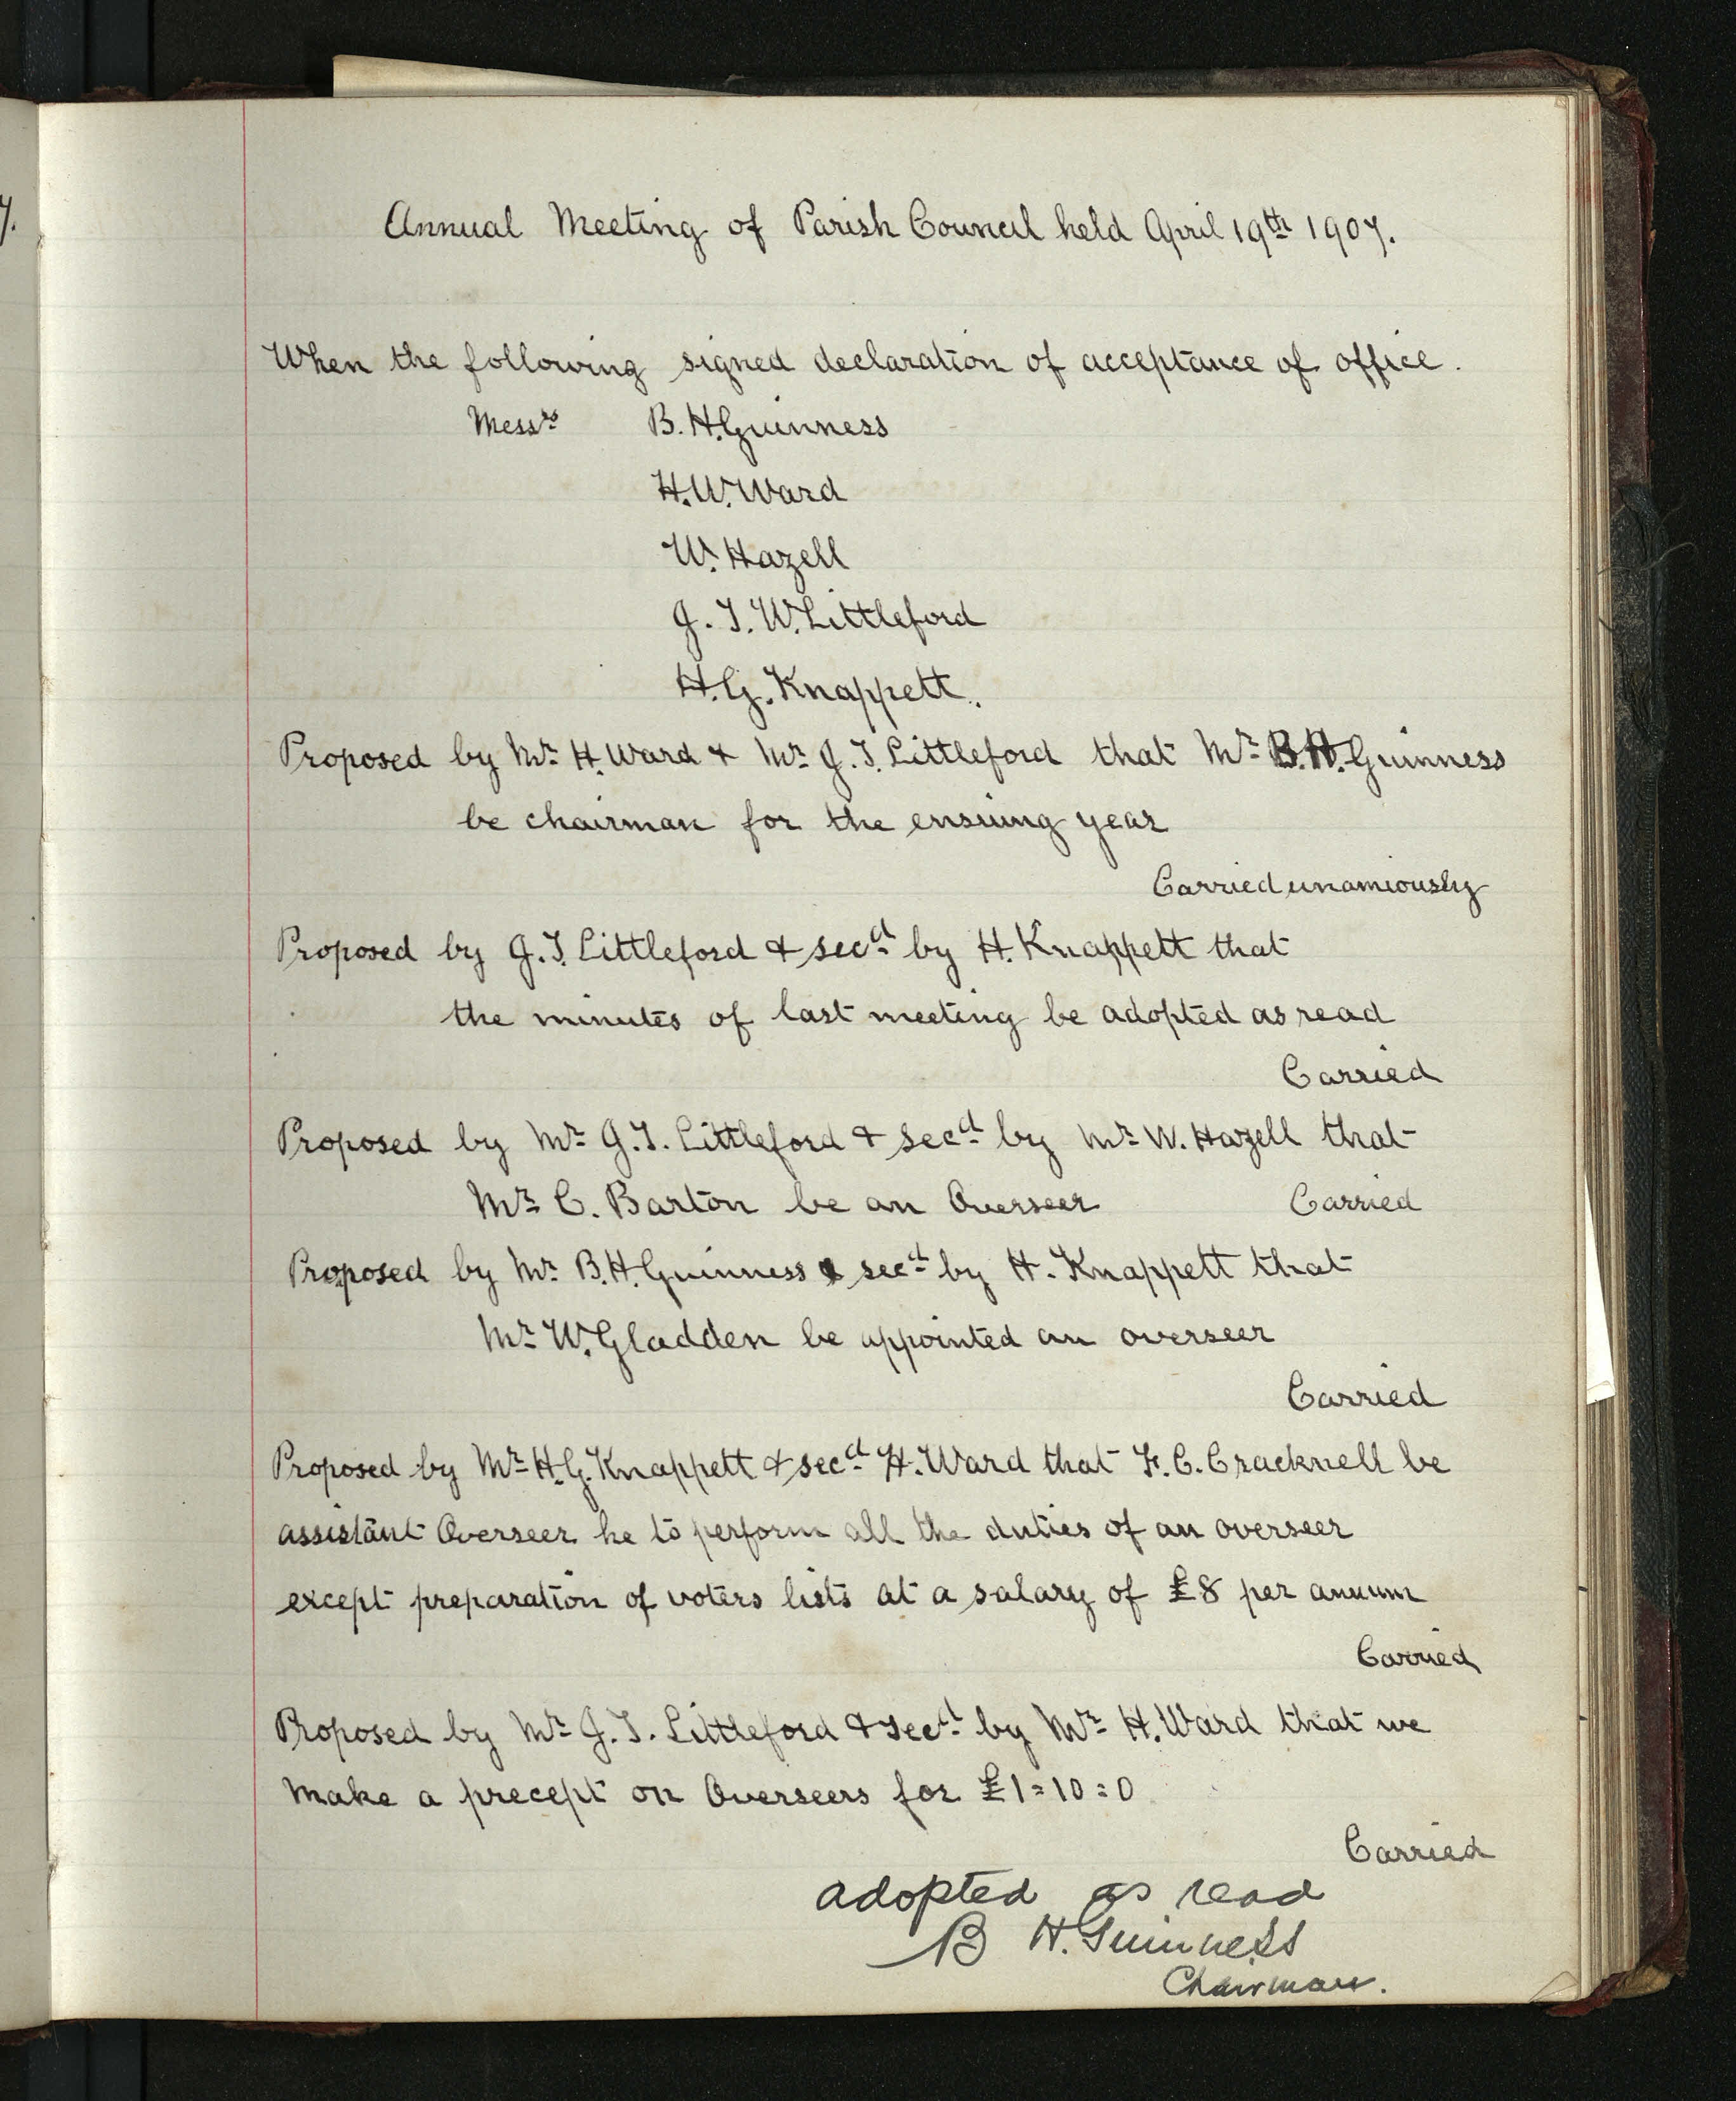 Annual Meeting of Parish Council held April 19th 1907.
When the following signed declaration of acceptance of office.
Messrs B. H. Guinness
H. W. Ward
W. Hazell
G. T. W. Littleford
H. G. Knappett.
Proposed by Mr H. Ward & Mr G. T. Littleford that Mr B. H. Guinness
be chairman for the ensuing year
Carried unamiously
Proposed by G. T. Littleford & secd by H. Knappett that
the minutes of last meeting be adopted as read
Carried
Proposed by Mr G. T. Littleford & secd by Mr W. Hazell that
Mr C. Barton be an Overseer Carried
Proposed by Mr B. H. Guinness & secd by H. Knappett that
Mr W. Gladden be appointed an overseer
Carried
Proposed by Mr H. G. Knappett & secd H. Ward that F. C. Cracknell be
assistant Overseer he to perform all the duties of an overseer
except preparation of voters lists at a salary of £8 per annum
Carried
Proposed by Mr G. T. Littleford & secd by Mr H. Ward that we
make a precept on Overseers for £1=10=0
Carried
adopted as read
B H. Guinness
Chairman.